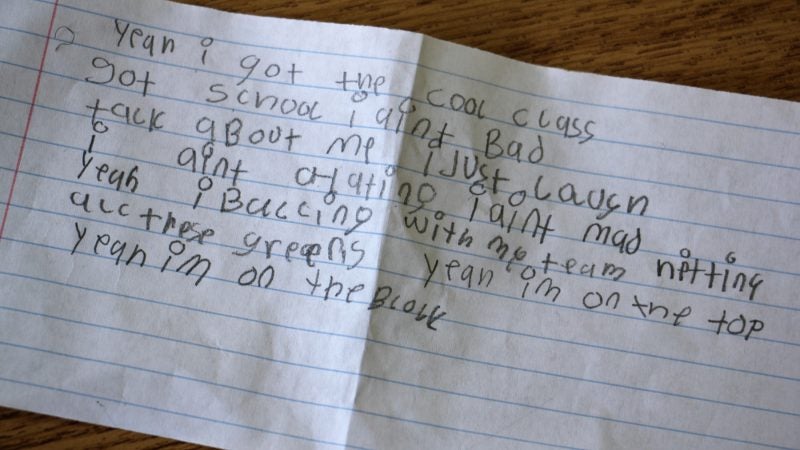 yeah i got the cool class
got school i aint Bad
tack aBout me i Just Laugh
i aint i aint mad
yeah i Balling with my team hitting
all these greens yeah im on the top
yeah im on the Block